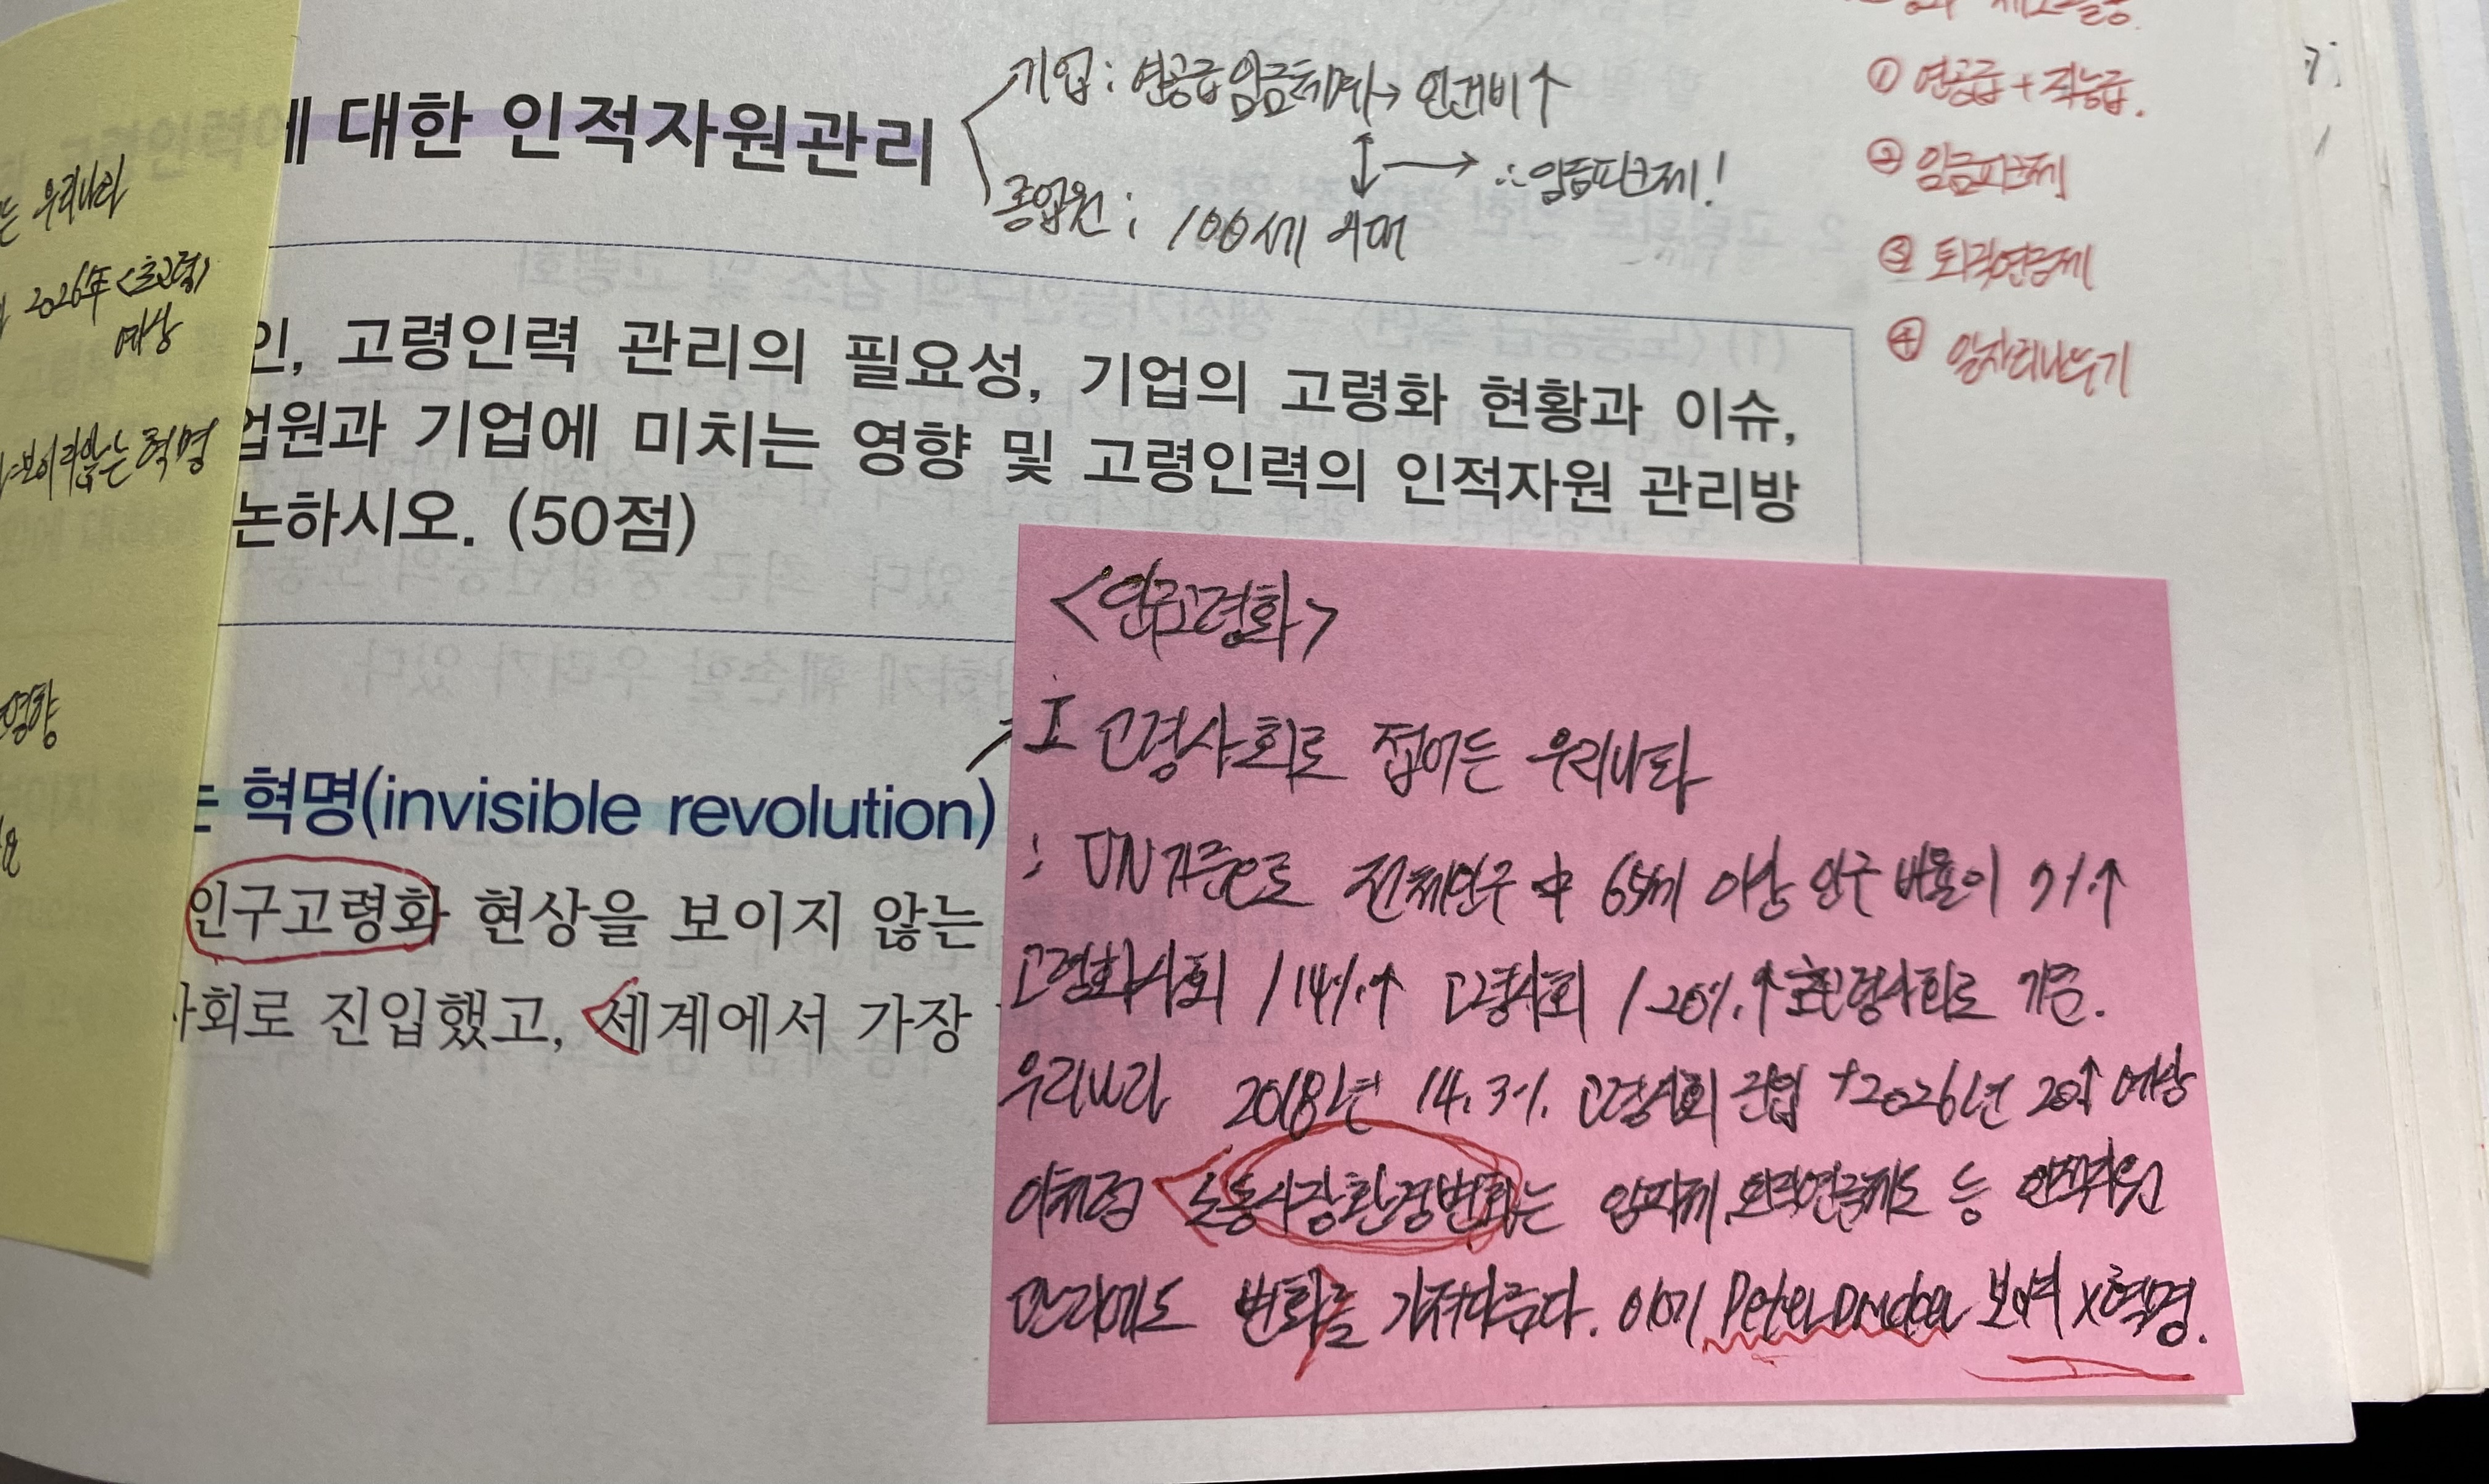 에 대한 인적자원관리
기업 : 연공급 임금체계 → 인건비↑
↕ → ∴ 임금피크제!
종업원 : 100세 시대
① 연공급 + 직능급.
② 임금피크제
③ 퇴직연금제
④ 일자리나누기
는 우리나라
2026年 <초고령>
예상
보이지않는 혁명
영향
인, 고령인력 관리의 필요성, 기업의 고령화 현황과 이슈,
업원과 기업에 미치는 영향 및 고령인력의 인적자원 관리방
논하시오. (50점)
는 혁명(invisible revolution)
인구고령화 현상을 보이지 않는
사회로 진입했고, 세계에서 가장
<인구고령화>
I 고령사회로 접어든 우리나라
: UN기준으로 전체인구 中 65세 이상 인구 비율이 7%↑
고령화사회 / 14%↑ 고령사회 / 20%↑ 초고령사회로 기준.
우리나라 2018년 14.3% 고령사회 진입 + 2026년 20↑ 예상
이처럼 노동시장환경변화는 임피제, 퇴직연금제도 등 인적자원
관리에도 변화를 가져다준다. 이미 Peter Drucker 보이지 x 혁명.